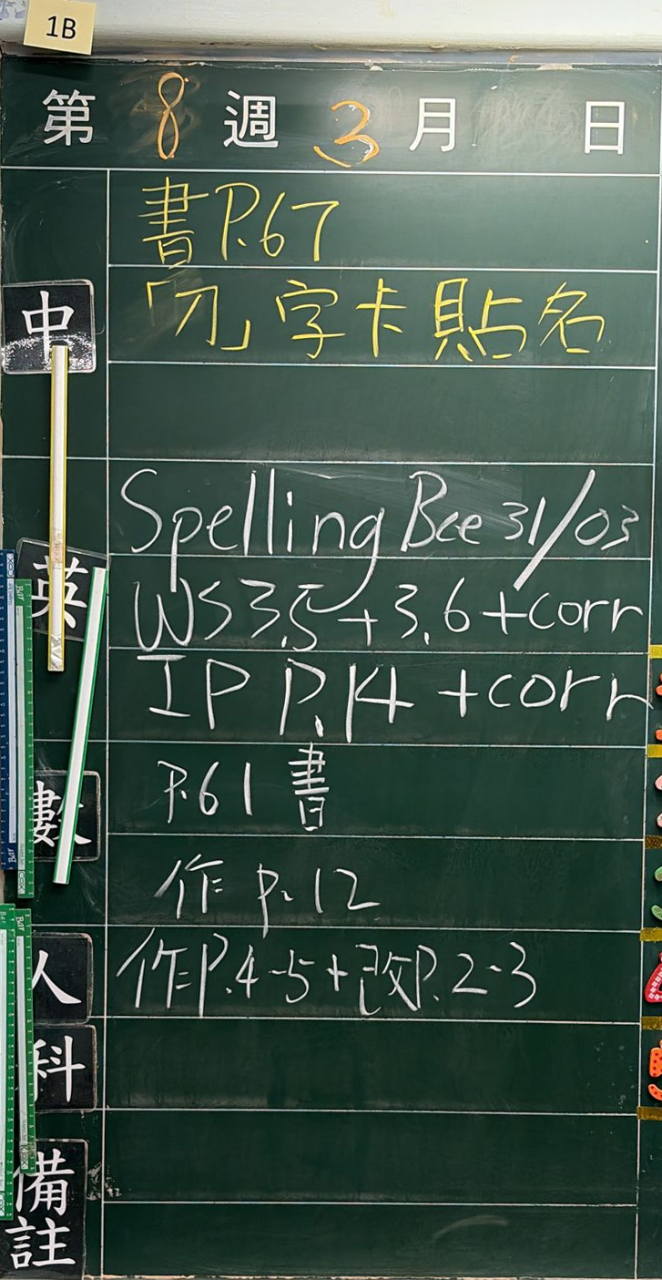 1B
第 8 週 3 月 日
書P.67
中 「刀」字卡貼名
Spelling Bee 31/03
英 WS3.5+3.6+corr
IP P.14 +corr
數 P.61書
作 P.12
人 作P.4-5+改P.2-3
科
備
註